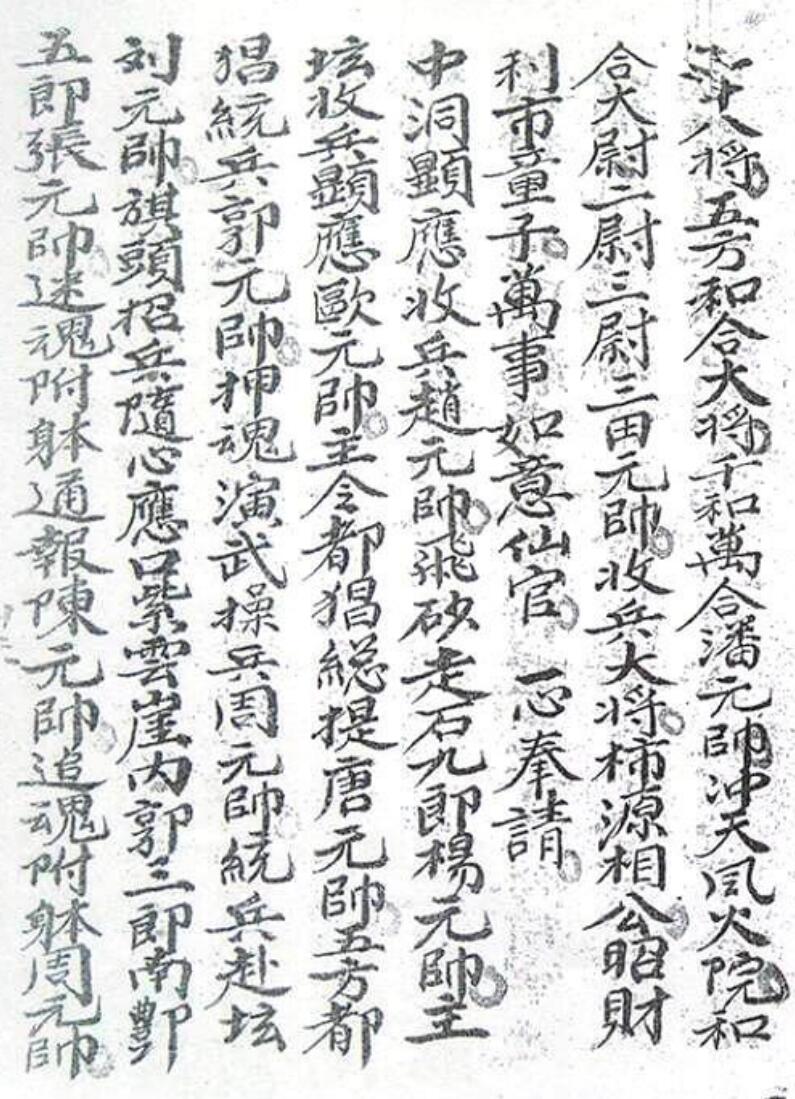 廿八將五方和合大將千和萬合潘元帥冲天風火院和
合大尉二尉三尉三田元帥收兵大將柿源相公昭財
利市童子萬事如意仙官 一心奉請
中洞顯應收兵趙元帥飛砂走石九郎楊元帥主
坛收兵顯應歐元帥主令都猖総提唐元帥五方都
猖統兵郭元帥押魂演武操兵周元帥統兵赴坛
刘元帥旗頭招兵隨心應口紫雲崖内郭三郎南鄷
五郎張元帥迷魂附躰通報陳元帥追魂附躰周元帥